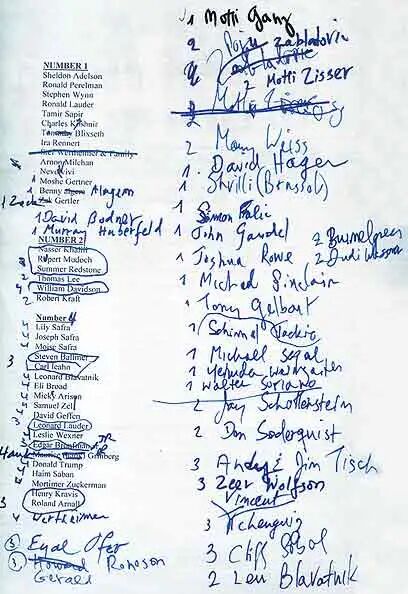 NUMBER 1
Sheldon Adelson
Ronald Perelman
Stephen Wynn
Ronald Lauder
Tamir Sapir
Charles Kushnir
Timothy Blixseth
Ira Rennert
Wertheimer & Family
Arnon Milchan
Nevel Vivi
1 Moshe Gertner
1 Benny Alagem
1 Zak Gertler
1 David Bodner
1 Murray Huberfeld
NUMBER 2
Nasser Khalili
Rupert Mudoch
Summer Redstone
2 Thomas Lee
4 William Davidson
2 Robert Kraft
Number 4
Lily Safra
Joseph Safra
Moise Safra
3 Steven Ballmer
Carl Icahn
Leonard Blavatnik
Eli Broad
Micky Arison
Samuel Zell
David Geffen
Leonard Lauder
Leslie Wexner
Edgar Bronfman JR
Hank Grinberg
Donald Trump
Haim Saban
Mortimer Zuckerman
Henry Kravis
3 Roland Arnall
4 Wertheimer
3. Eyal Ofer
3. Howard Ronson
Gerald
1 Motti Ganz
2 Zabladovic
2 Motti Zisser
2 Mony Weiss
1 David Hager
1 Shvilli (Brussol)
1 Simon Falic
1 John Gandel
1 Joshua Rowe
1 Michael Sinclair
1 Tony Gelbart
1 Schimmel Jackie
1 Michael Segal
1 Yehuda
1 Walter Soriano
2 Jay Schottenstein
2 Don Soderquist
3 Andy & Jim Tisch
3 Zeev Wolfson
Vincent
Tchenguiz
3 Cliff Sobol
2 Len Blavatnik
2
2 Dudi